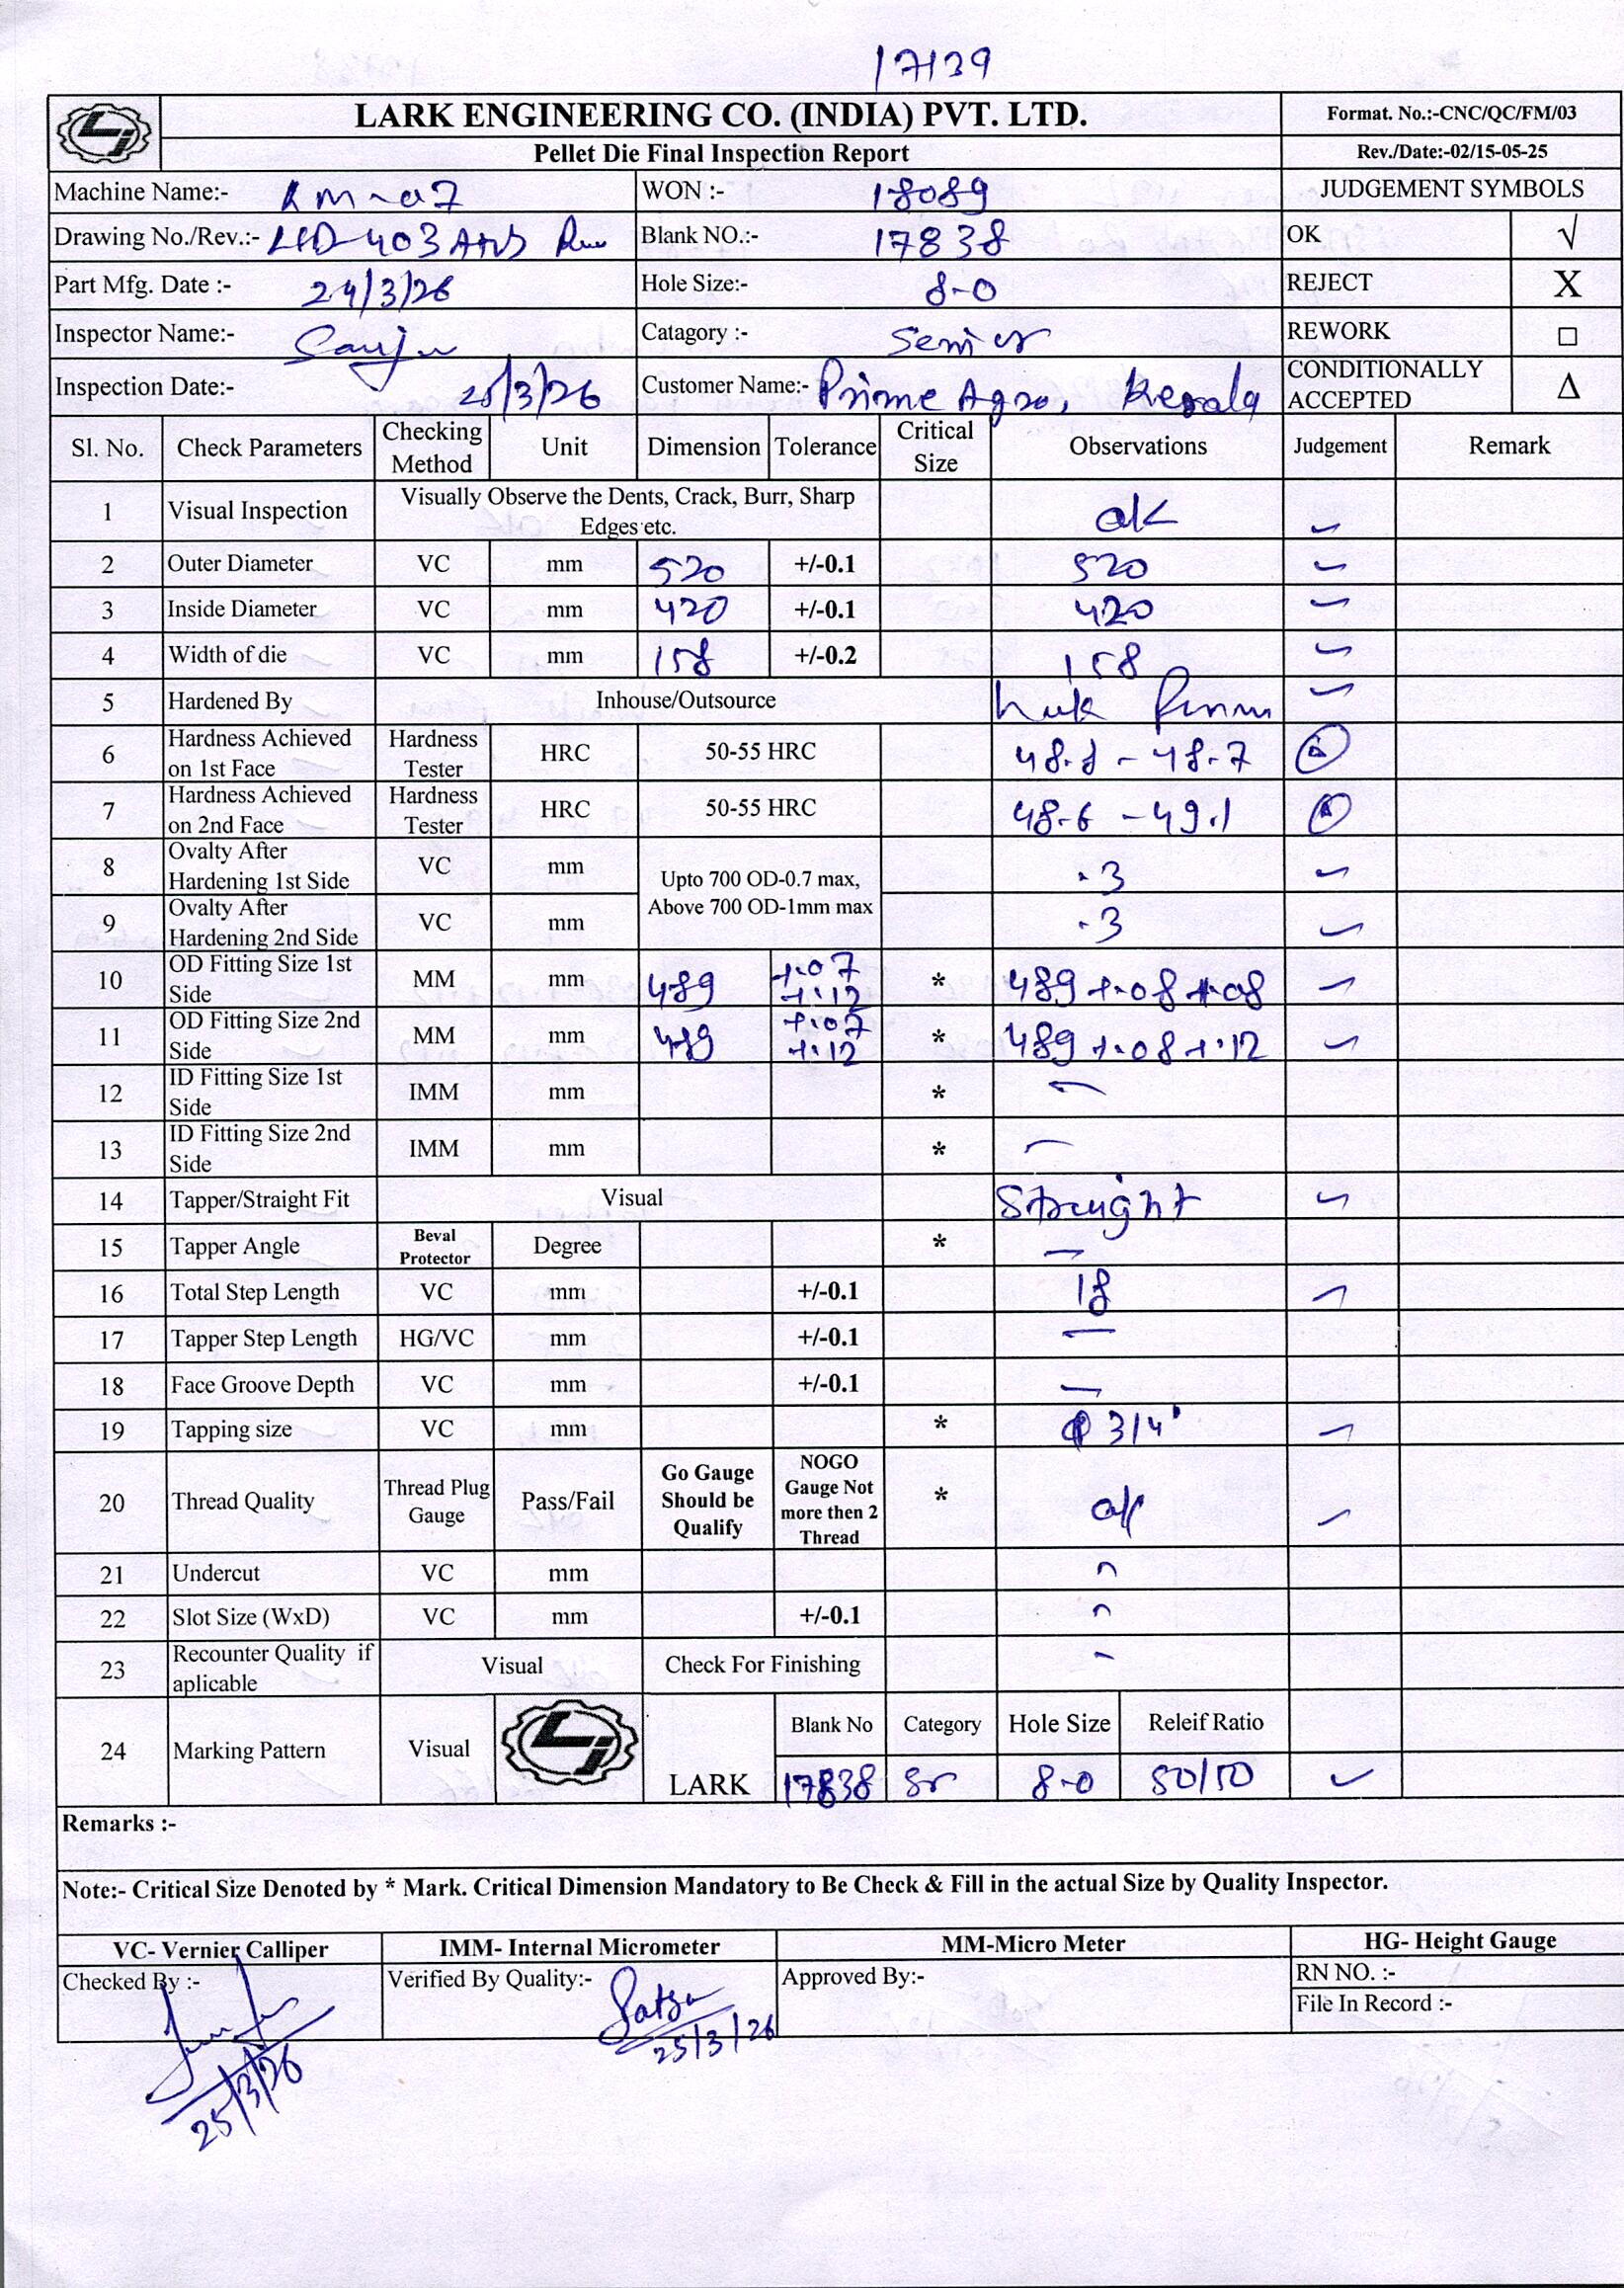 17139
LARK ENGINEERING CO. (INDIA) PVT. LTD.
Format. No.:-CNC/QC/FM/03
Pellet Die Final Inspection Report
Rev./Date:-02/15-05-25
Machine Name:- LM-07 WON :- 18089 JUDGEMENT SYMBOLS
Drawing No./Rev.:- Blank NO.:- 17838 OK √
Part Mfg. Date :- 24/3/26 Hole Size:- 8-0 REJECT X
Inspector Name:- Sanju Catagory :- Senior REWORK □
Inspection Date:- 25/3/26 Customer Name:- Prime Agro, Kerala CONDITIONALLY ACCEPTED Δ
Sl. No. Check Parameters Checking Method Unit Dimension Tolerance Critical Size Observations Judgement Remark
1 Visual Inspection Visually Observe the Dents, Crack, Burr, Sharp Edges etc. ok
2 Outer Diameter VC mm 520 +/-0.1 520
3 Inside Diameter VC mm 420 +/-0.1 420
4 Width of die VC mm 158 +/-0.2 158
5 Hardened By Inhouse/Outsource
6 Hardness Achieved on 1st Face Hardness Tester HRC 50-55 HRC 48.8 - 48.7
7 Hardness Achieved on 2nd Face Hardness Tester HRC 50-55 HRC 48.6 - 49.1
8 Ovalty After Hardening 1st Side VC mm Upto 700 OD-0.7 max, Above 700 OD-1mm max .3
9 Ovalty After Hardening 2nd Side VC mm .3
10 OD Fitting Size 1st Side MM mm 489 +.07 +.12 * 489 +.08 +.08
11 OD Fitting Size 2nd Side MM mm 489 +.07 +.12 * 489 +.08 +.12
12 ID Fitting Size 1st Side IMM mm *
13 ID Fitting Size 2nd Side IMM mm *
14 Tapper/Straight Fit Visual Straight
15 Tapper Angle Beval Protector Degree *
16 Total Step Length VC mm +/-0.1 18
17 Tapper Step Length HG/VC mm +/-0.1
18 Face Groove Depth VC mm +/-0.1
19 Tapping size VC mm * φ 3/4"
20 Thread Quality Thread Plug Gauge Pass/Fail Go Gauge Should be Qualify NOGO Gauge Not more then 2 Thread * ok
21 Undercut VC mm
22 Slot Size (WxD) VC mm +/-0.1
23 Recounter Quality if aplicable Visual Check For Finishing
24 Marking Pattern Visual LARK Blank No Category Hole Size Releif Ratio
17838 Sr 8-0 50/50
Remarks :-
Note:- Critical Size Denoted by * Mark. Critical Dimension Mandatory to Be Check & Fill in the actual Size by Quality Inspector.
VC- Vernier Calliper IMM- Internal Micrometer MM-Micro Meter HG- Height Gauge
Checked By :- Verified By Quality:- Approved By:- RN NO. :-
File In Record :-
25/3/26
25/3/26